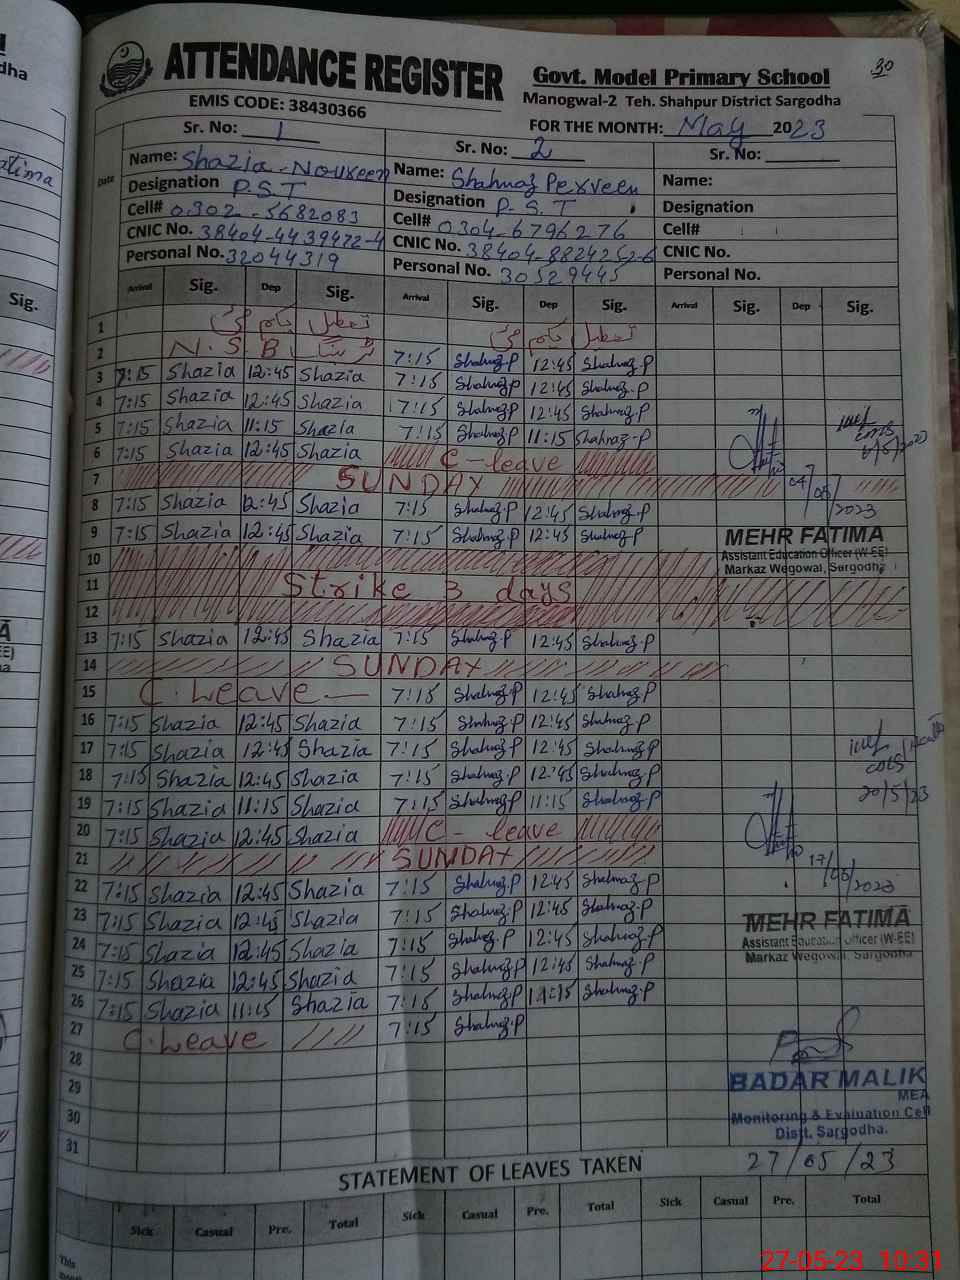 30
ATTENDANCE REGISTER
Govt. Model Primary School
EMIS CODE: 38430366
Manogwal-2 Teh. Shahpur District Sargodha
Sr. No: 1
FOR THE MONTH: May 2023
Sr. No: 2
Sr. No:
Date
Name: Shazia Noureen
Name: Shahnaz Perveen
Name:
Designation P.S.T
Designation P.S.T
Designation
Cell# 0302-5682083
Cell# 0304-6796276
Cell#
CNIC No. 38404-4439422-4
CNIC No. 38404-8824252-6
CNIC No.
Personal No. 32044319
Personal No. 30529445
Personal No.
Arrival Sig. Dep Sig. Arrival Sig. Dep Sig. Arrival Sig. Dep Sig.
1 تعطیل یکم مئی تعطیل یکم مئی
2 N.S.B 7:15 Shahnaz.P 12:45 Shahnaz.P
3 7:15 Shazia 12:45 Shazia 7:15 Shahnaz.P 12:45 Shahnaz.P
4 7:15 Shazia 12:45 Shazia 7:15 Shahnaz.P 12:45 Shahnaz.P
5 7:15 Shazia 11:15 Shazia 7:15 Shahnaz.P 11:15 Shahnaz.P
6 7:15 Shazia 12:45 Shazia C-leave
7 SUNDAY
04/05/2023
8 7:15 Shazia 12:45 Shazia 7:15 Shahnaz.P 12:45 Shahnaz.P
9 7:15 Shazia 12:45 Shazia 7:15 Shahnaz.P 12:45 Shahnaz.P
MEHR FATIMA
Assistant Education Officer (W-EE)
Markaz Wegowal, Sargodha
10
11 Strike 3 days
12
13 7:15 Shazia 12:45 Shazia 7:15 Shahnaz.P 12:45 Shahnaz.P
14 SUNDAY
15 C.Leave 7:15 Shahnaz.P 12:45 Shahnaz.P
16 7:15 Shazia 12:45 Shazia 7:15 Shahnaz.P 12:45 Shahnaz.P
17 7:15 Shazia 12:45 Shazia 7:15 Shahnaz.P 12:45 Shahnaz.P
18 7:15 Shazia 12:45 Shazia 7:15 Shahnaz.P 12:45 Shahnaz.P
20/5/23
19 7:15 Shazia 11:15 Shazia 7:15 Shahnaz.P 11:15 Shahnaz.P
20 7:15 Shazia 12:45 Shazia C-leave
21 SUNDAY
17/05/2023
22 7:15 Shazia 12:45 Shazia 7:15 Shahnaz.P 12:45 Shahnaz.P
23 7:15 Shazia 12:45 Shazia 7:15 Shahnaz.P 12:45 Shahnaz.P
MEHR FATIMA
Assistant Education Officer (W-EE)
Markaz Wegowal, Sargodha
24 7:15 Shazia 12:45 Shazia 7:15 Shahnaz.P 12:45 Shahnaz.P
25 7:15 Shazia 12:45 Shazia 7:15 Shahnaz.P 12:45 Shahnaz.P
26 7:15 Shazia 11:15 Shazia 7:15 Shahnaz.P 11:15 Shahnaz.P
27 C.Leave 7:15 Shahnaz.P
28
29
30
31
BADAR MALIK
MEA
Monitoring & Evaluation Cell
Distt. Sargodha.
27/05/23
STATEMENT OF LEAVES TAKEN
Sick Casual Pre. Total Sick Casual Pre. Total Sick Casual Pre. Total
This
27-05-23 10:31